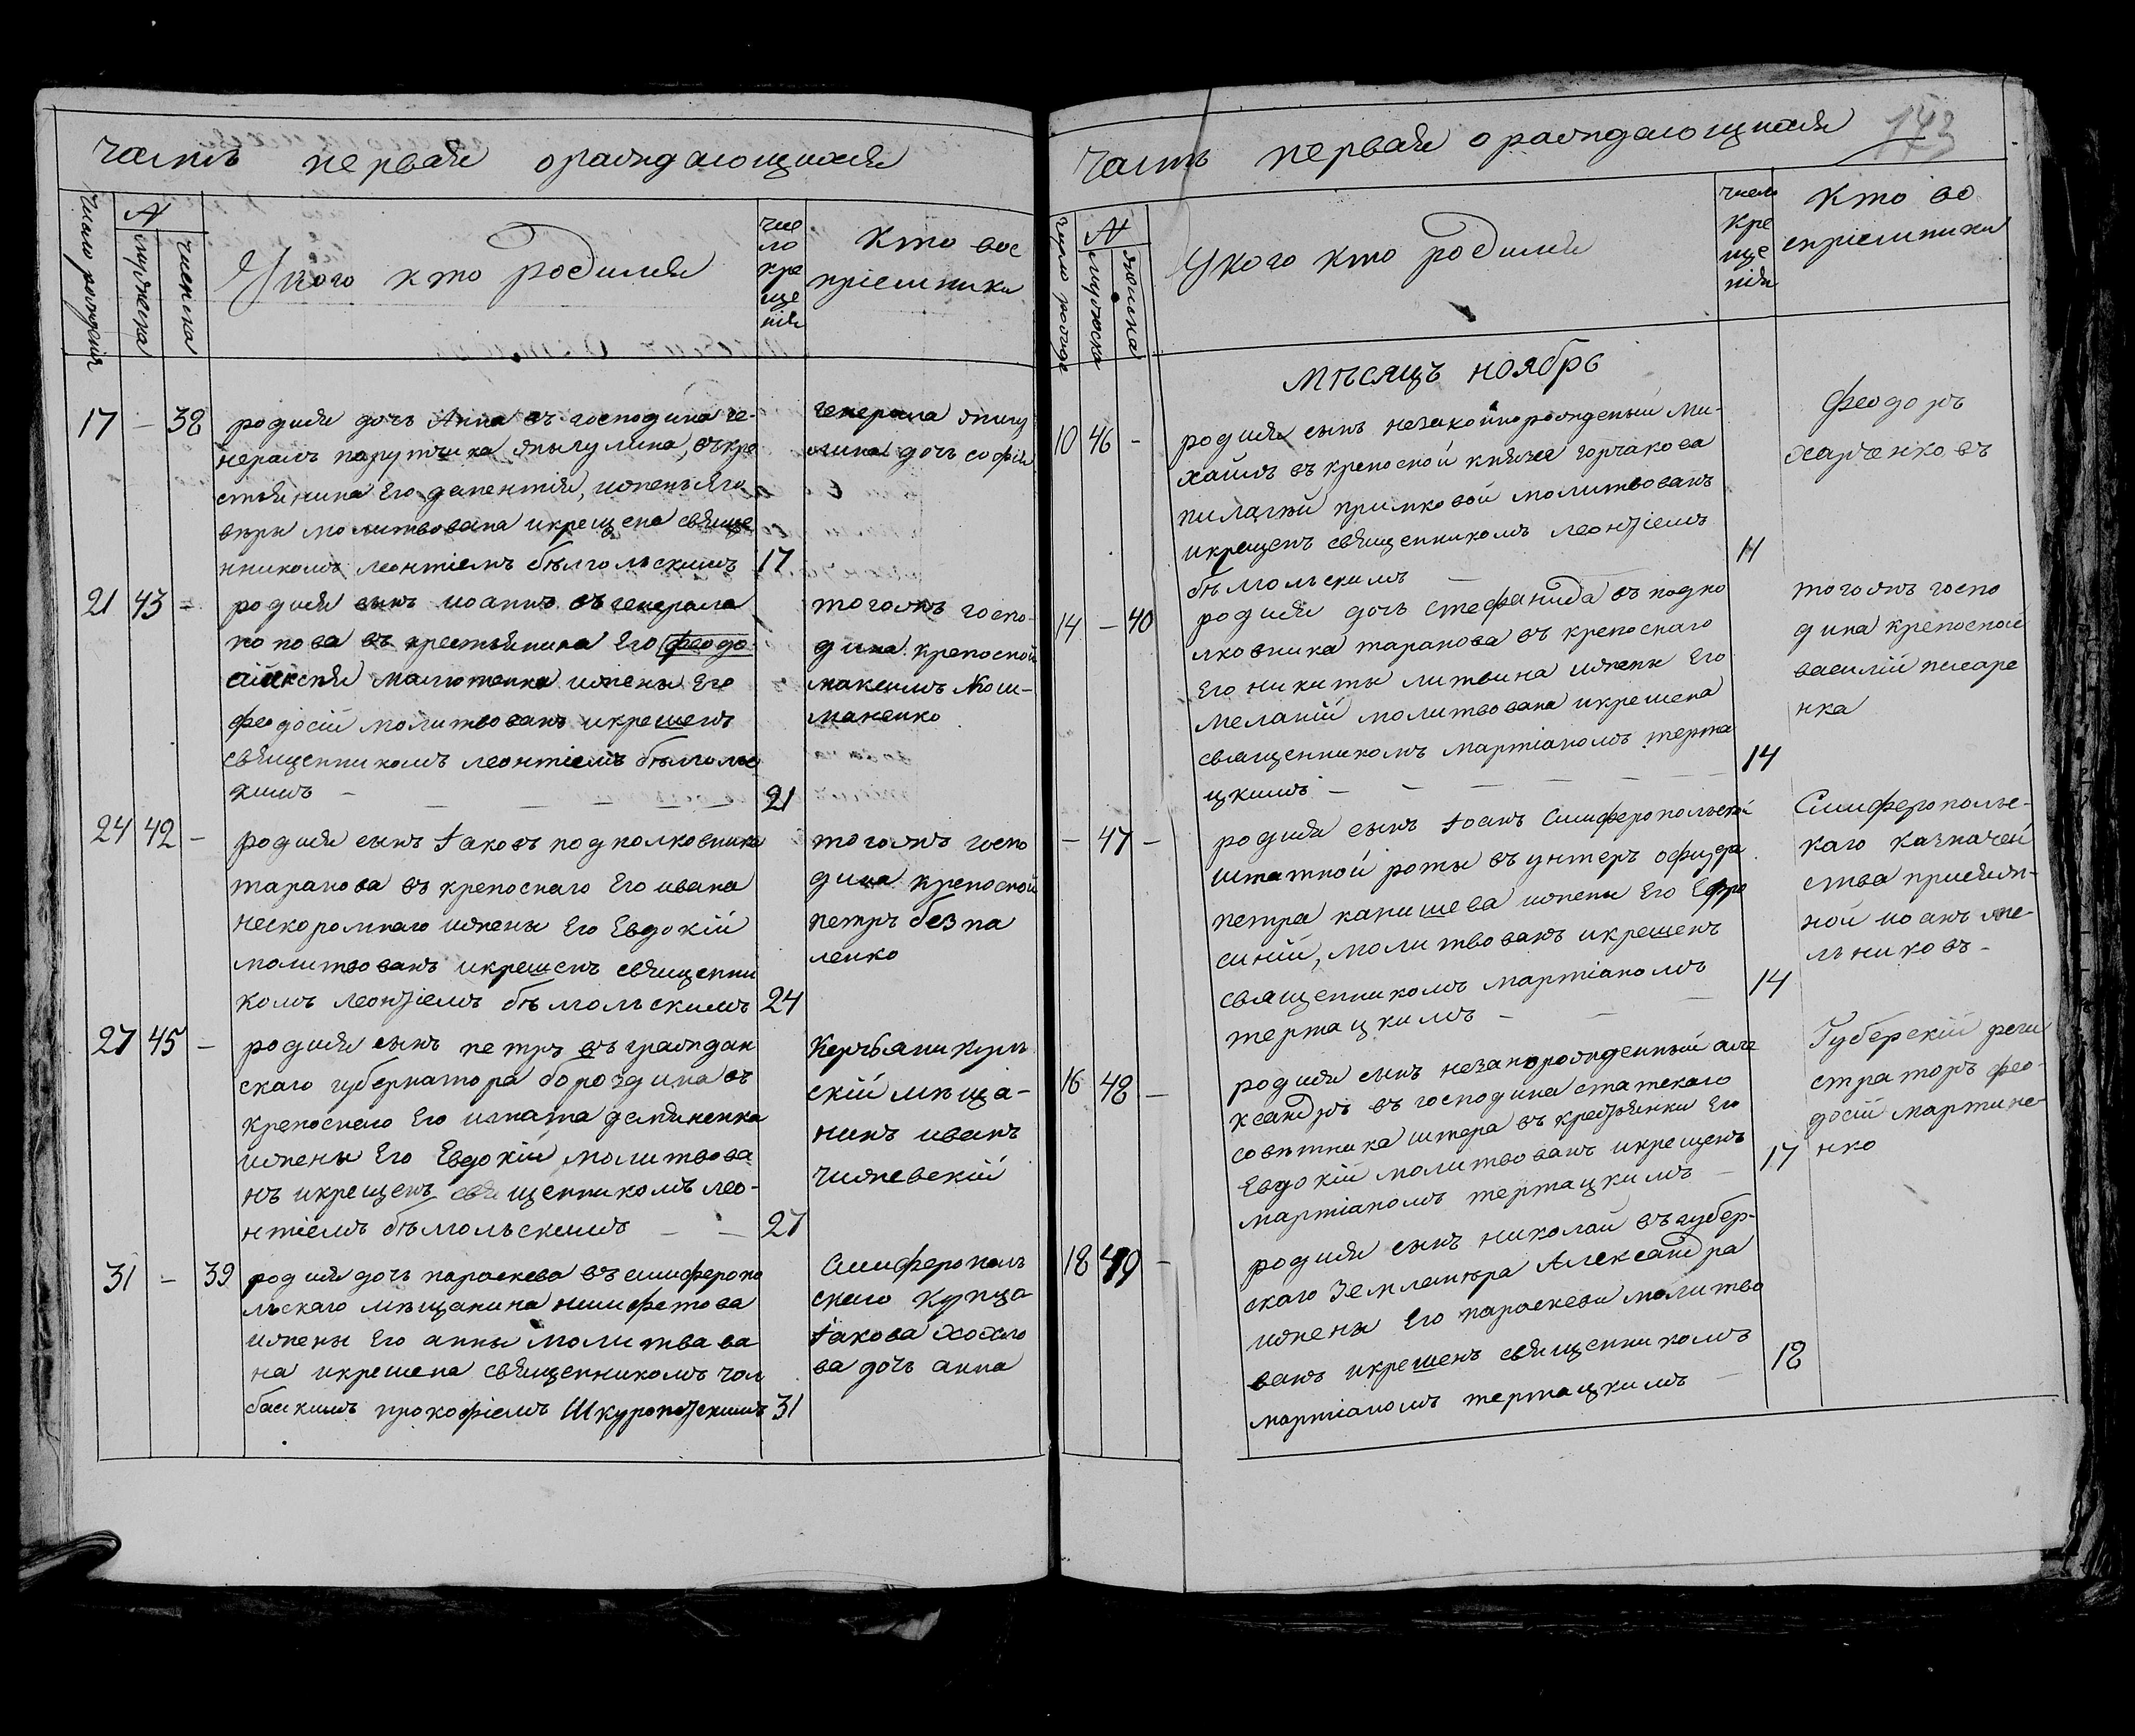 часть первая о раждающихся
число рождения
№
мужеска
женска
У кого кто родился
чис
ло
кре
ще
нія
Кто вос
пріемники
17 – 38
родися дочь Анна въ господина ге-
нералъ порутчика
стьянина его жены его
веры молитвована и крещена свяще
нникомъ леонтіемъ бѣлгольскимъ 17
генерала
дочь софія
21 43 –
родися сынъ иоаннъ въ генерала
попова въ крестьянина его феодо
малютенка и жены его
феодосіи молитвованъ и крещенъ
священникомъ леонтіемъ бѣлгольс
кимъ – – – – 21
тогожъ госпо-
дина крепосной
максимъ
маненко
24 42 –
родися сынъ Іаковъ подполковника
таранова въ крепоснаго его ивана
нескоромнаго и жены его Евдокіи
молитвованъ и крещенъ священни
комъ леонтіемъ бѣлгольскимъ 24
тогожъ госпо
дина крепосной
петръ безпа
ленко
27 45 –
родися сынъ петръ въ граждан
скаго губернатора бороздина въ
крепоснаго его игната демяненка
и жены его Евдокіи молитвова
нъ и крещенъ священникомъ лео-
нтіемъ бѣлгольскимъ – – 27
скій мѣща-
нинъ иванъ
чижевскій
31 – 39
родися дочь параскева въ симферопо
льскаго мѣщанина никифетова
и жены его анны молитвава
на и крещена священникомъ чол
баскимъ прокофіемъ Шкуропатскимъ 31
Симферополь
скаго купца
Іакова Хохло
ва дочь анна
часть первая о раждающихся
143
число рожде
№
мужеска
женска
У кого кто родился
число
кре
ще
нія
Кто во
спріемники
мѣсяцъ ноябрь
10 46 –
родися сынъ незаконнорожденый ми-
хаилъ въ крепосной князя горчакова
пилагѣи примковой молитвованъ
и крещенъ священникомъ леонтіемъ
бѣлгольскимъ – 11
феодоръ
харченковъ
14 – 40
родися дочь стефанида въ подпо
лковника таранова въ крепоснаго
его никиты литвина и жены его
меланіи молитвована и крещена
священникомъ мартіаномъ терта
цкимъ – – – – – 14
тогожъ госпо
дина крепосной
василій писаре
нка
– 47 –
родися сынъ Іоанъ Симферопольской
штатной роты въ унтеръ офицера
петра канишева и жены его Ефро
синіи, молитвованъ и крещенъ
священникомъ мартіаномъ
тертацкимъ – – – 14
Симферопольс-
каго казначей
ства присяж-
ной иоанъ ме-
льниковъ –
16 48 –
родися сынъ незанорожденный але
ксандръ въ господина статскаго
советника штера въ крестьянки его
Евдокіи молитвованъ и крещенъ
мартіаномъ тертацкимъ – 17
Губерскій реги
страторъ фео-
досій мартине
нко
18 49 –
родися сынъ николай въ губер-
скаго землемѣра Александра
и жены его параскевы молитво
ванъ и крещенъ священникомъ
мартіаномъ тертацкимъ – 18